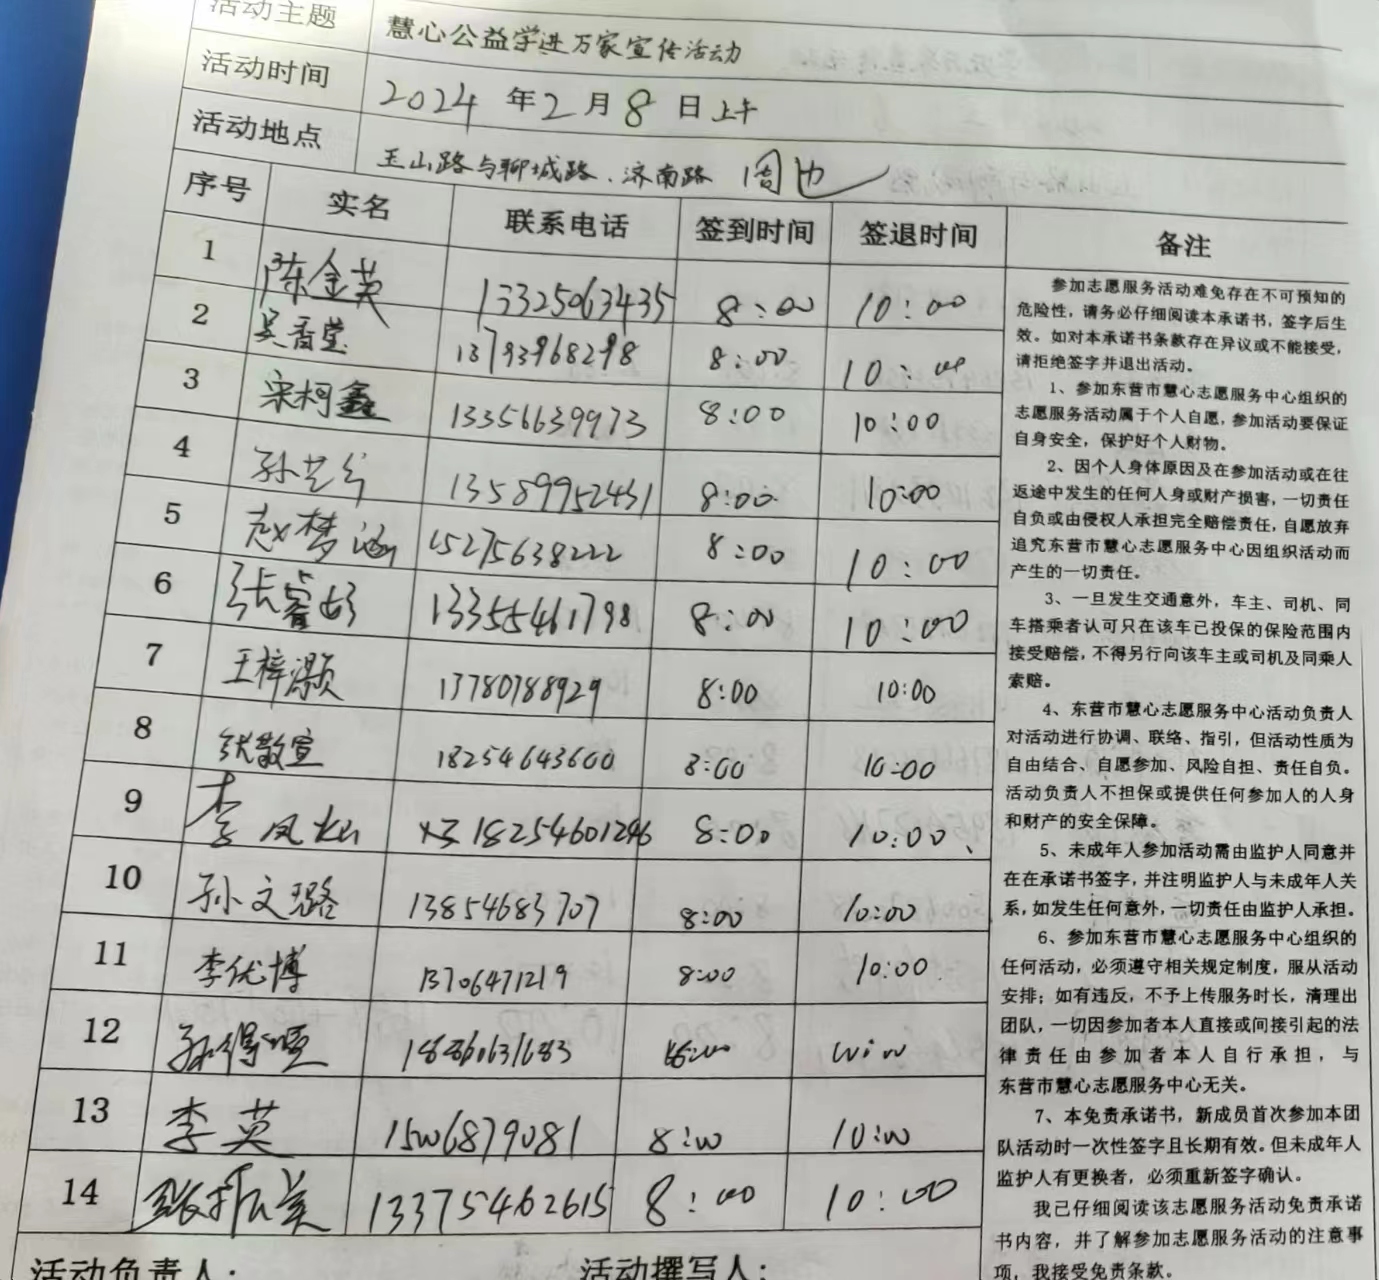 活动主题 慧心公益学进万家宣传活动
活动时间 2024 年 2 月 8 日上午
活动地点 玉山路与聊城路、济南路 周边
序号 实名 联系电话 签到时间 签退时间 备注
1 陈金英 13325063435 8:00 10:00
2 吴香莹 13793968298 8:00 10:00
3 宋柯鑫 13356639973 8:00 10:00
4 孙艺兮 13589952431 8:00 10:00
5 赵梦涵 15275638222 8:00 10:00
6 张睿妤 13355461798 8:00 10:00
7 王梓灏 13780788929 8:00 10:00
8 张散宣 18254643600 8:00 10:00
9 李凤灿 18254601246 8:00 10:00
10 孙文璐 13854683707 8:00 10:00
11 李优博 13706471219 8:00 10:00
12 18860631683
13 李英 15006879081 8:00 10:00
14 张振美 13375462615 8:00 10:00
活动负责人: 活动撰写人:
参加志愿服务活动难免存在不可预知的
危险性，请务必仔细阅读本承诺书，签字后生
效。如对本承诺书条款存在异议或不能接受，
请拒绝签字并退出活动。
1、参加东营市慧心志愿服务中心组织的
志愿服务活动属于个人自愿，参加活动要保证
自身安全，保护好个人财物。
2、因个人身体原因及在参加活动或在往
返途中发生的任何人身或财产损害，一切责任
自负或由侵权人承担完全赔偿责任，自愿放弃
追究东营市慧心志愿服务中心因组织活动而
产生的一切责任。
3、一旦发生交通意外，车主、司机、同
车搭乘者认可只在该车已投保的保险范围内
接受赔偿，不得另行向该车主或司机及同乘人
索赔。
4、东营市慧心志愿服务中心活动负责人
对活动进行协调、联络、指引，但活动性质为
自由结合、自愿参加、风险自担、责任自负。
活动负责人不担保或提供任何参加人的人身
和财产的安全保障。
5、未成年人参加活动需由监护人同意并
在在承诺书签字，并注明监护人与未成年人关
系，如发生任何意外，一切责任由监护人承担。
6、参加东营市慧心志愿服务中心组织的
任何活动，必须遵守相关规定制度，服从活动
安排；如有违反，不予上传服务时长，清理出
团队，一切因参加者本人直接或间接引起的法
律责任由参加者本人自行承担，与
东营市慧心志愿服务中心无关。
7、本免责承诺书，新成员首次参加本团
队活动时一次性签字且长期有效。但未成年人
监护人有更换者，必须重新签字确认。
我已仔细阅读该志愿服务活动免责承诺
书内容，并了解参加志愿服务活动的注意事
项，我接受免责条款。